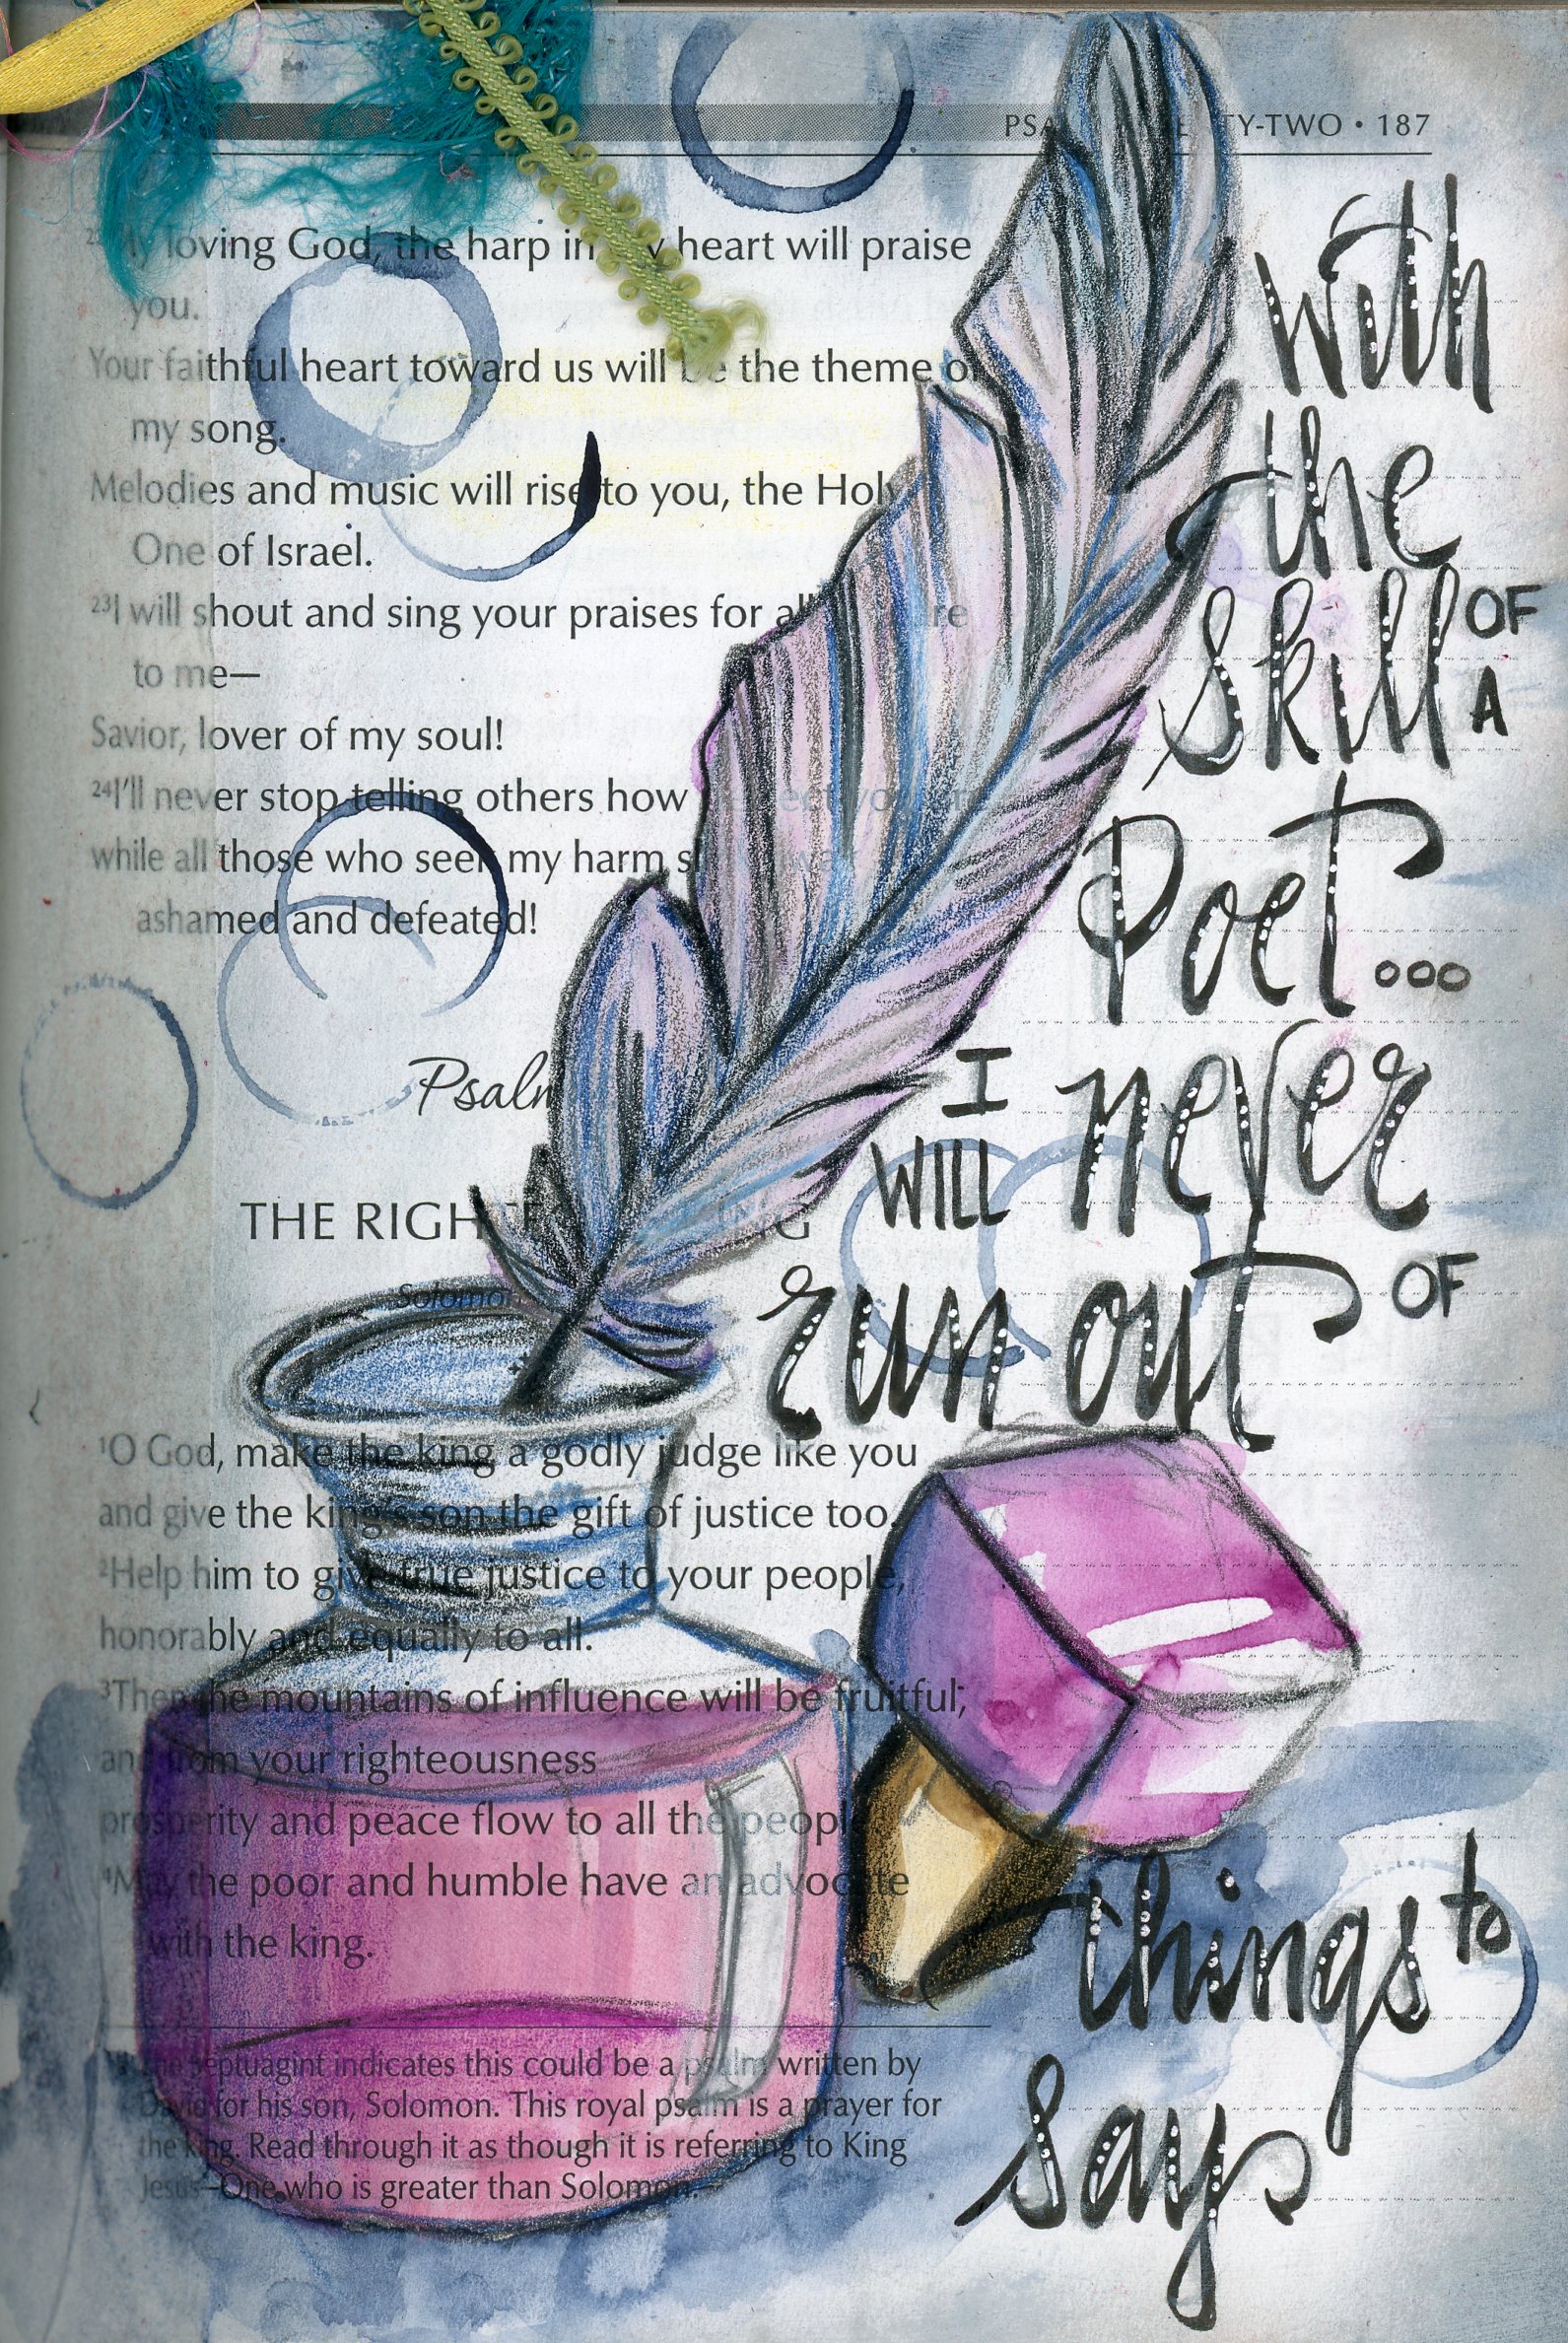 PSA TY-TWO • 187
loving God, the harp in heart will praise
you.
Your faithful heart toward us will be the theme of
my song.
Melodies and music will rise to you, the Holy
One of Israel.
23I will shout and sing your praises for all are
to me—
Savior, lover of my soul!
24I'll never stop telling others how perfect you are
while all those who seek my harm slink away
ashamed and defeated!
Psalm
THE RIGHTEOUS KING
Solomon
1O God, make the king a godly judge like you
and give the king's son the gift of justice too.
2Help him to give true justice to your people,
honorably and equally to all.
3Then the mountains of influence will be fruitful;
and from your righteousness
prosperity and peace flow to all the people
4May the poor and humble have an advocate
with the king.
The Septuagint indicates this could be a psalm written by
David for his son, Solomon. This royal psalm is a prayer for
the king. Read through it as though it is referring to King
Jesus—One who is greater than Solomon.
with
the
skill OF
A
Poet...
I never
WILL
run out OF
things to
say